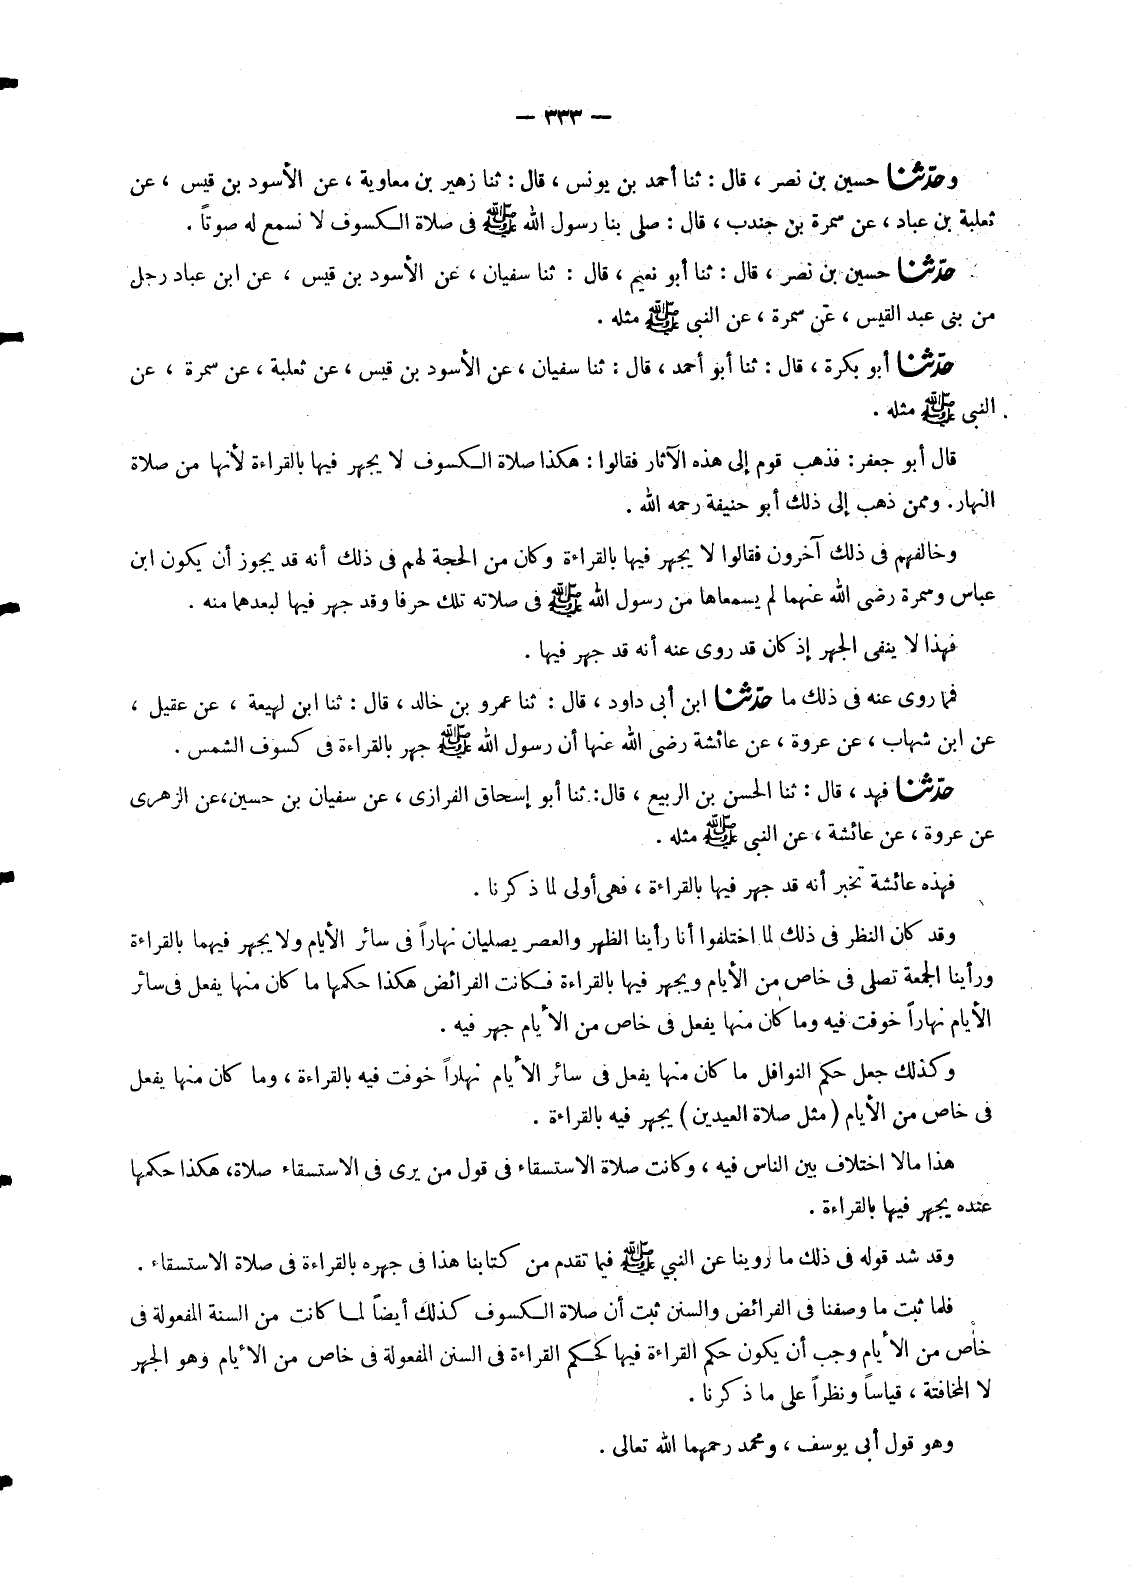 — ٣٣٣ —
وحدّثنا حسين بن نصر ، قال : ثنا أحمد بن يونس ، قال : ثنا زهير بن معاوية ، عن الأسود بن قيس ، عن
ثعلبة بن عباد ، عن سمرة بن جندب ، قال : صلى بنا رسول الله ﷺ فى صلاة الكسوف لا نسمع له صوتاً .
حدّثنا حسين بن نصر ، قال : ثنا أبو نعيم ، قال : ثنا سفيان ، عن الأسود بن قيس ، عن ابن عباد رجل
من بنى عبد القيس ، عن سمرة ، عن النبى ﷺ مثله .
حدّثنا أبو بكرة ، قال : ثنا أبو أحمد ، قال : ثنا سفيان ، عن الأسود بن قيس ، عن ثعلبة ، عن سمرة ، عن
النبى ﷺ مثله .
قال أبو جعفر : فذهب قوم إلى هذه الآثار فقالوا : هكذا صلاة الكسوف لا يجهر فيها بالقراءة لأنها من صلاة
النهار . وممن ذهب إلى ذلك أبو حنيفة رحمه الله .
وخالفهم فى ذلك آخرون فقالوا لا يجهر فيها بالقراءة وكان من الحجة لهم فى ذلك أنه قد يجوز أن يكون ابن
عباس وسمرة رضى الله عنهما لم يسمعاها من رسول الله ﷺ فى صلاته تلك حرفا وقد جهر فيها لبعدهما منه .
فهذا لا ينفى الجهر إذ كان قد روى عنه أنه قد جهر فيها .
فما روى عنه فى ذلك ما حدّثنا ابن أبى داود ، قال : ثنا عمرو بن خالد ، قال : ثنا ابن لهيعة ، عن عقيل ،
عن ابن شهاب ، عن عروة ، عن عائشة رضى الله عنها أن رسول الله ﷺ جهر بالقراءة فى كسوف الشمس .
حدّثنا فهد ، قال : ثنا الحسن بن الربيع ، قال : ثنا أبو إسحاق الفرازى ، عن سفيان بن حسين ، عن الزهرى
عن عروة ، عن عائشة ، عن النبى ﷺ مثله .
فهذه عائشة تخبر أنه قد جهر فيها بالقراءة ، فهى أولى لما ذكرنا .
وقد كان النظر فى ذلك لما اختلفوا أنا رأينا الظهر والعصر يصليان نهاراً فى سائر الأيام ولا يجهر فيهما بالقراءة
ورأينا الجمعة تصلى فى خاص من الأيام ويجهر فيها بالقراءة فكانت الفرائض هكذا حكمها ما كان منها يفعل فى سائر
الأيام نهاراً خوفت فيه وما كان منها يفعل فى خاص من الأيام جهر فيه .
وكذلك جعل حكم النوافل ما كان منها يفعل فى سائر الأيام نهاراً خوفت فيه بالقراءة ، وما كان منها يفعل
فى خاص من الأيام ( مثل صلاة العيدين ) يجهر فيه بالقراءة .
هذا مالا اختلاف بين الناس فيه ، وكانت صلاة الاستسقاء فى قول من يرى فى الاستسقاء صلاة، هكذا حكمها
عنده يجهر فيها بالقراءة .
وقد شد قوله فى ذلك ما روينا عن النبي ﷺ فيما تقدم من كتابنا هذا فى جهره بالقراءة فى صلاة الاستسقاء .
فلما ثبت ما وصفنا فى الفرائض والسنن ثبت أن صلاة الكسوف كذلك أيضاً لما كانت من السنة المفعولة فى
خاص من الأيام وجب أن يكون حكم القراءة فيها كحكم القراءة فى السنن المفعولة فى خاص من الأيام وهو الجهر
لا المخافتة ، قياساً ونظراً على ما ذكرنا .
وهو قول أبى يوسف ، ومحمد رحمهما الله تعالى .